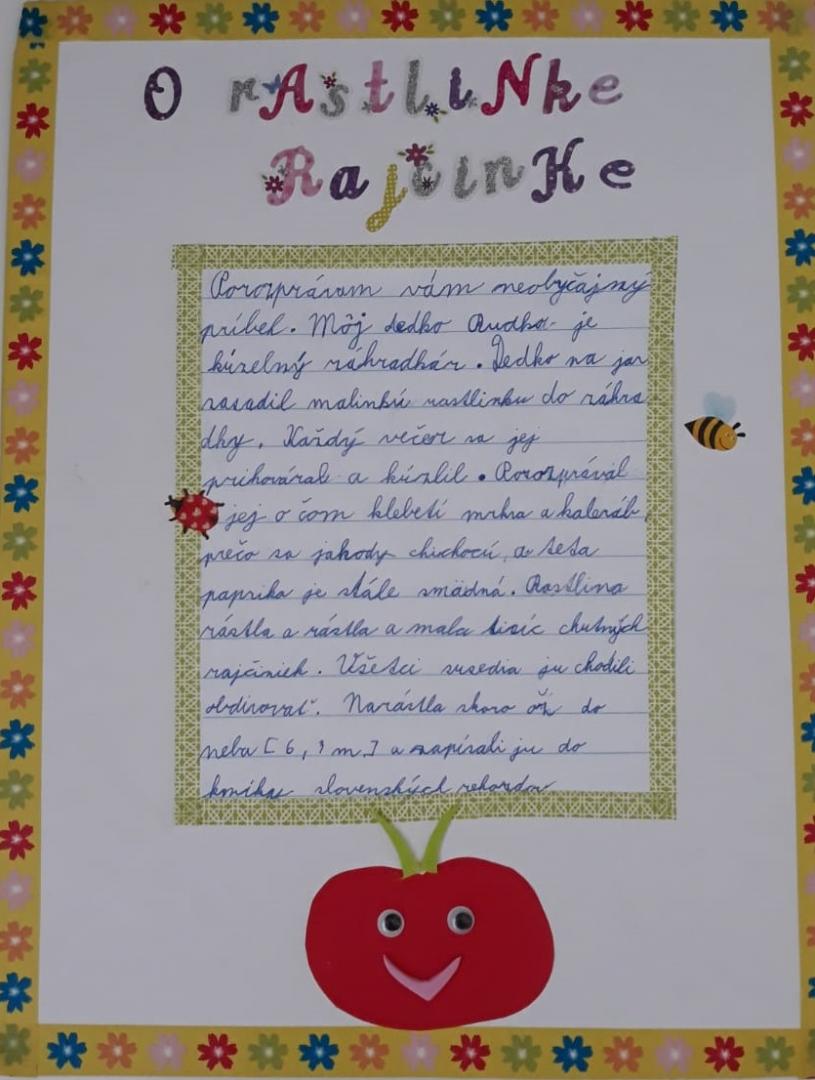 O rAstliNke
RajčinKe
Porozprávam vám neobyčajný
príbeh. Môj dedko Rudko je
kúzelný záhradkár. Dedko na jar
zasadil malinkú rastlinku do záhra
dky. Každý večer sa jej
prihováral a kúzlil. Porozprával
jej o čom klebetí mrkva a kaleráb,
prečo sa jahody chichocú, a teta
paprika je stále smädná. Rastlina
rástla a rástla a mala tisíc chutných
rajčiniek. Všetci susedia ju chodili
obdivovať. Narástla skoro až do
neba [6,3 m.] a zapísali ju do
knihy slovenských rekordov